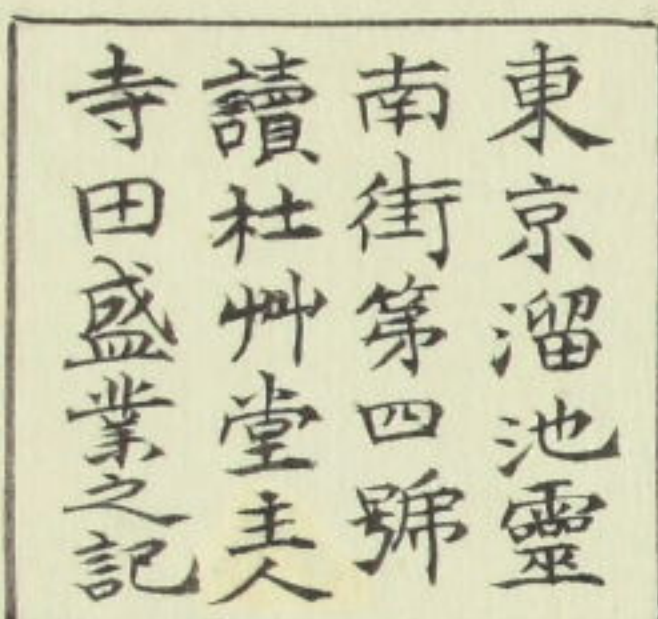 東京溜池靈
南街第四號
讀杜艸堂主人
寺田盛業之記